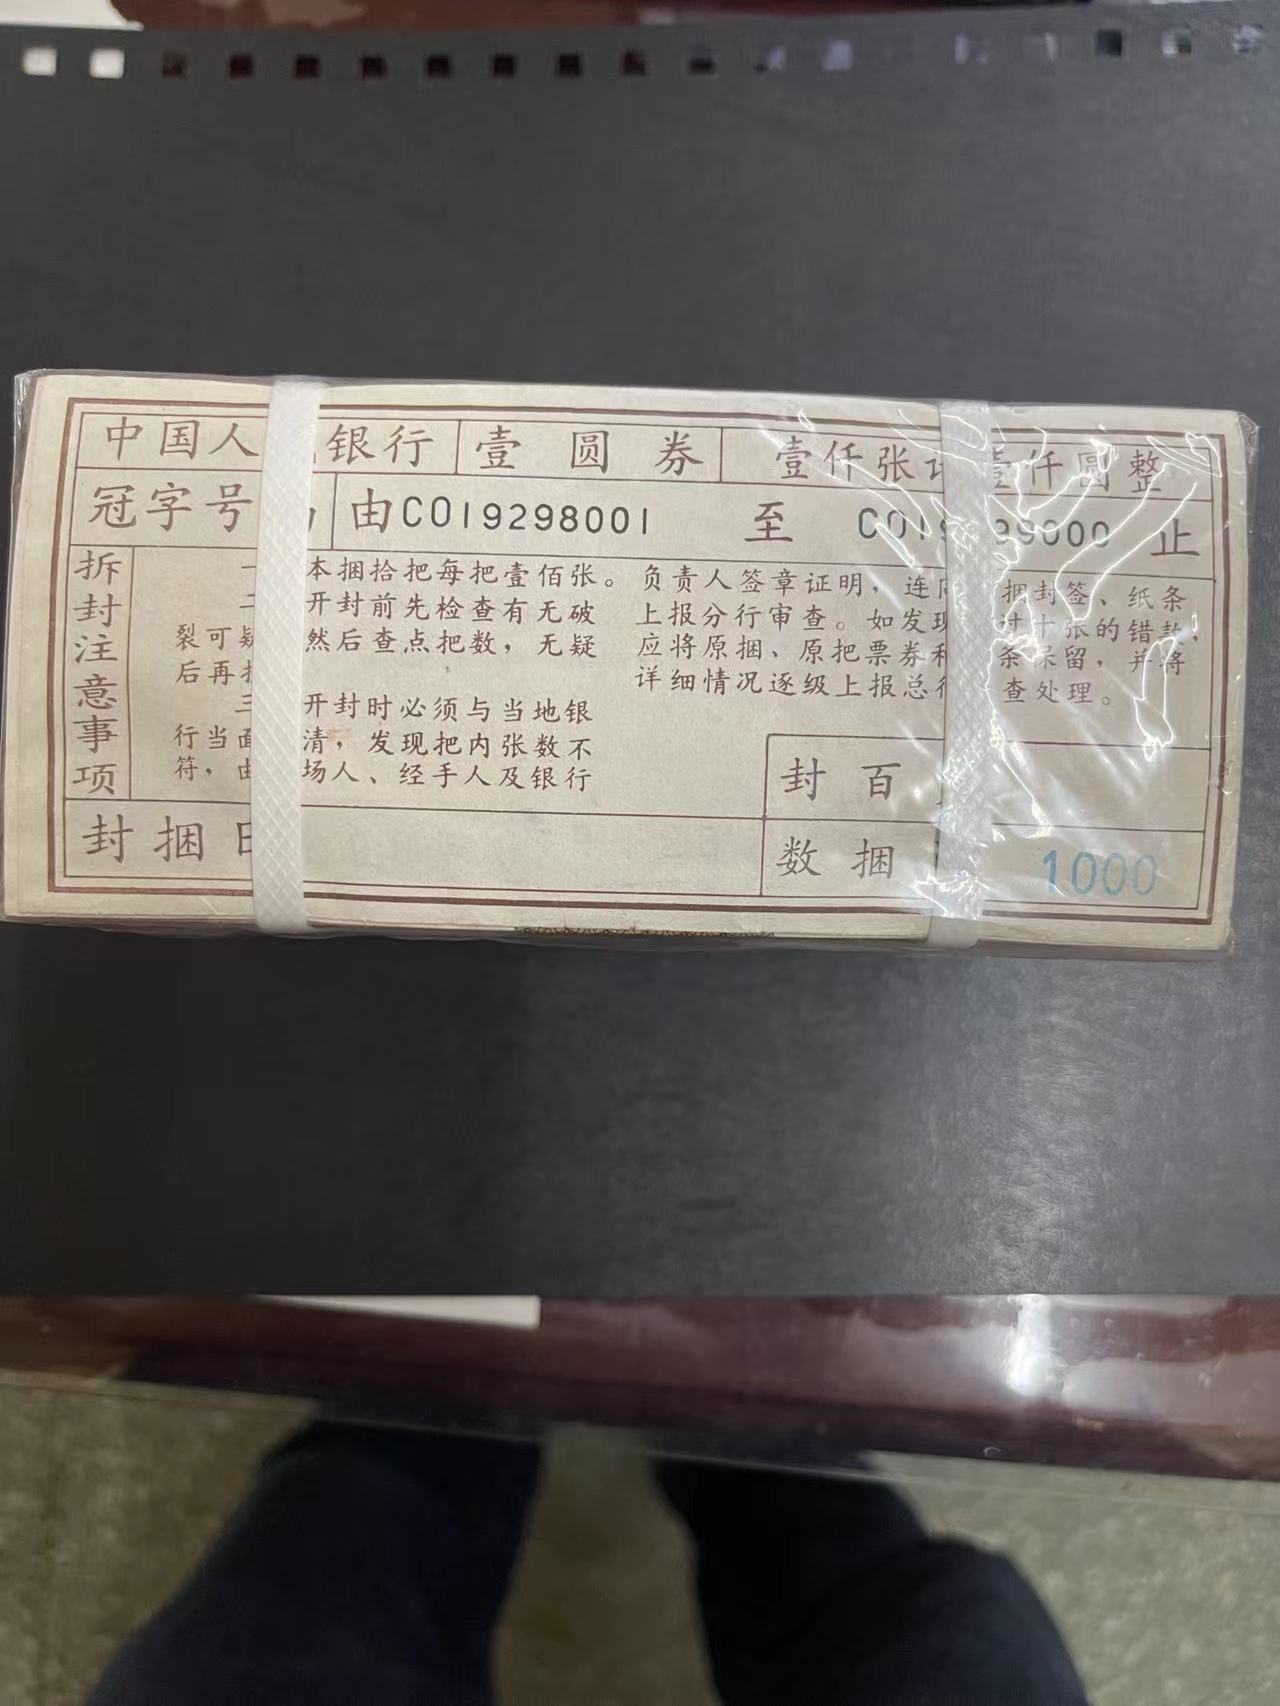 中国人 银行 壹圆券 壹仟张 壹仟圆整
冠字号 由CO19298001 至 CO19 99000 止
拆封注意事项
一 本捆拾把每把壹佰张。
二 开封前先检查有无破
裂可疑 然后查点把数，无疑
后再
三 开封时必须与当地银
行当面 清，发现把内张数不
符，由 场人、经手人及银行
负责人签章证明，连同 捆封签、纸条
上报分行审查。如发现 十张的错款，
应将原捆、原把票券和 条保留，并将
详细情况逐级上报总行 查处理。
封百
封捆日
数捆 1000